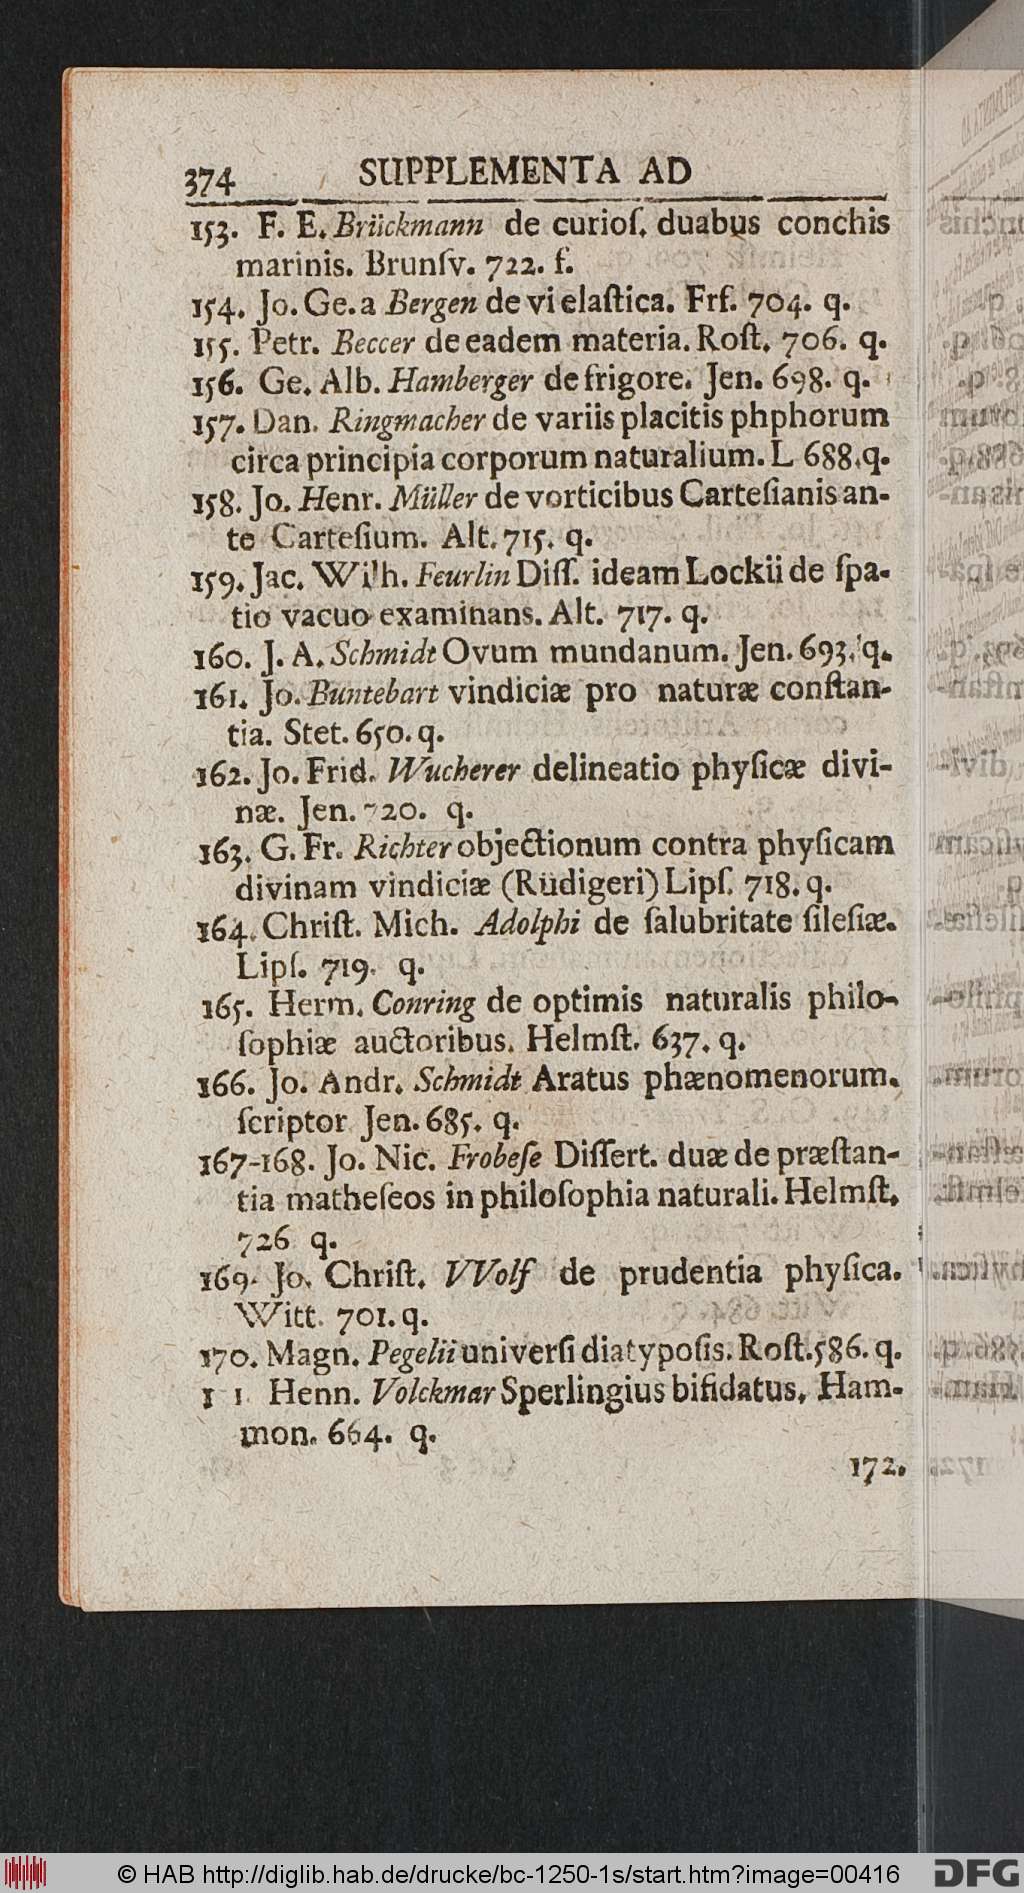 374 SUPPLEMENTA AD
153. F. E. Brückmann de curioſ. duabus conchis
marinis. Brunſv. 722. f.
154. Jo. Ge. a Bergen de vi elaſtica. Frf. 704. q.
155. Petr. Beccer de eadem materia. Roſt. 706. q.
156. Ge. Alb. Hamberger de frigore. Jen. 698. q.
157. Dan. Ringmacher de variis placitis phphorum
circa principia corporum naturalium. L 688. q.
158. Jo. Henr. Müller de vorticibus Carteſianis an-
te Carteſium. Alt. 715. q.
159. Jac. Wilh. Feurlin Diſſ. ideam Lockii de ſpa-
tio vacuo examinans. Alt. 717. q.
160. J. A. Schmidt Ovum mundanum. Jen. 693. q.
161. Jo. Buntebart vindiciæ pro naturæ conſtan-
tia. Stet. 650. q.
162. Jo. Frid. Wucherer delineatio phyſicæ divi-
næ. Jen. 720. q.
163. G. Fr. Richter objectionum contra phyſicam
divinam vindiciæ (Rüdigeri) Lipſ. 718. q.
164. Chriſt. Mich. Adolphi de ſalubritate ſileſiæ.
Lipſ. 719. q.
165. Herm. Conring de optimis naturalis philo-
ſophiæ auctoribus. Helmſt. 637. q.
166. Jo. Andr. Schmidt Aratus phænomenorum.
ſcriptor Jen. 685. q.
167-168. Jo. Nic. Frobeſe Diſſert. duæ de præſtan-
tia matheſeos in philoſophia naturali. Helmſt.
726 q.
169. Jo. Chriſt. VVolf de prudentia phyſica.
Witt. 701. q.
170. Magn. Pegelii univerſi diatypoſis. Roſt. 586. q.
1 1. Henn. Volckmar Sperlingius bifidatus. Ham-
mon. 664. q.
172.
© HAB http://diglib.hab.de/drucke/bc-1250-1s/start.htm?image=00416 DFG